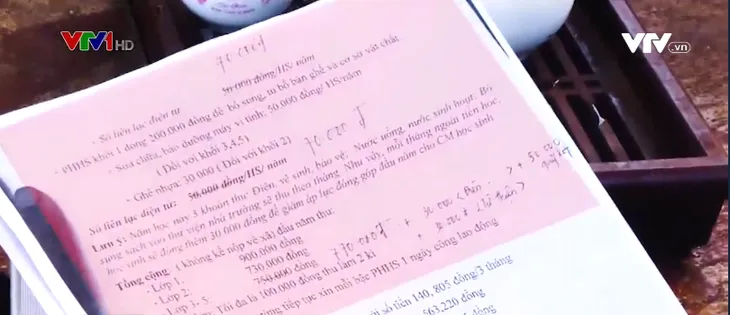 VTV1 HD
VTV.vn
70 000đ
50.000 đồng/HS/ năm
- Sổ liên lạc điện tử
- PHHS khối 1 đóng 200.000 đồng để bổ sung, tu bổ bàn ghế và cơ sở vật chất.
- Sửa chữa, bảo dưỡng máy vi tính: 50.000 đồng/ HS/năm
( Đối với khối 3,4,5)
- Ghế nhựa: 30.000 ( Đối với khối 2)
70 000 đ
Sổ liên lạc điện tử: 50.000 đồng/HS/ năm
Lưu ý: Năm học này 3 khoản thu: Điện, vệ sinh, bảo vệ, Nước uống, nước sinh hoạt, Bổ
sung sách vào thư viện nhà trường sẽ thu theo tháng. Như vậy, mỗi tháng ngoài tiền học,
học sinh sẽ đóng thêm 30.000 đồng để giảm áp lực đóng góp đầu năm cho CM học sinh
Tổng cộng ( không kể nộp về xã) đầu năm thu:
- Lớp 1: 900.000 đồng
- Lớp 2: 730.000 đồng
- Lớp 3- 5: 750.000 đồng 770 000đ + 30.000
Tối đa là 100.000 đồng thu làm 2 kì
tiếp tục xin mỗi bậc PHHS 1 ngày công lao động
số tiền 140, 805 đồng/3 tháng
563,220 đồng